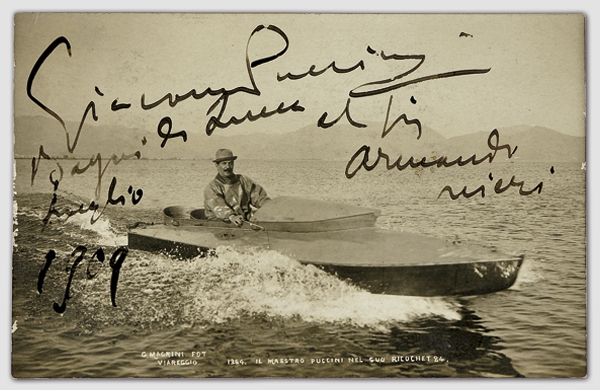 Giacomo Puccini
al Sig
Armando
Nieri
Bagni di Lucca
Luglio
1909
G. MAGRINI FOT
VIAREGGIO
IL MAESTRO PUCCINI NEL SUO RICOCHET 84.